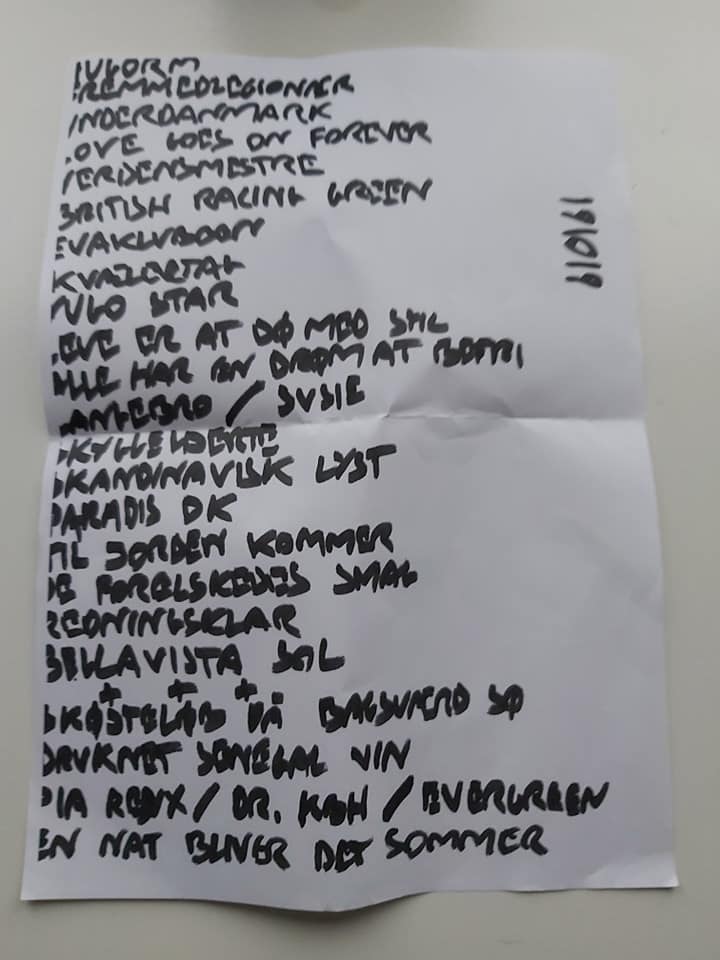 FREMMEDLEGIONÆR
INDERDANMARK
LOVE GOES ON FOREVER
VERDENSMESTRE
BRITISH RACING GREEN
NGO STAR
LEVE ER AT DØ MED STIL
ALLE HAR EN DRØM AT BEFRI
LANGEBRO / SUSIE
SKANDINAVISK LYST
PARADIS DK
TIL JORDEN KOMMER
DE FORELSKEDES SMAG
REDNINGSKLAR
BELLAVISTA SOL
+ + +
SKØJTELØB PÅ BAGSVÆRD SØ
DRUKNET SENEGAL VIN
PIA REDUX / DR. KOH / EVERGREEN
EN NAT BLIVER DET SOMMER
191019